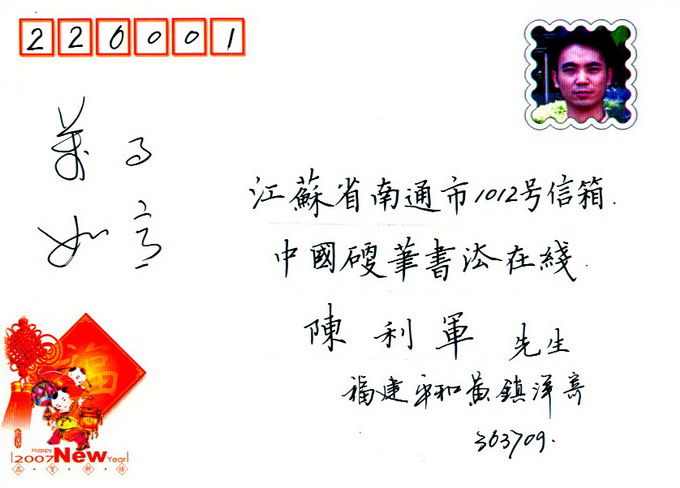 220001
萬事
如意
江蘇省南通市1012号信箱.
中國硬筆書法在綫.
陳利軍 先生
福建平和黄鎮洋寄
363709.
福
Happy
2007 New Year
恭·賀·新·禧